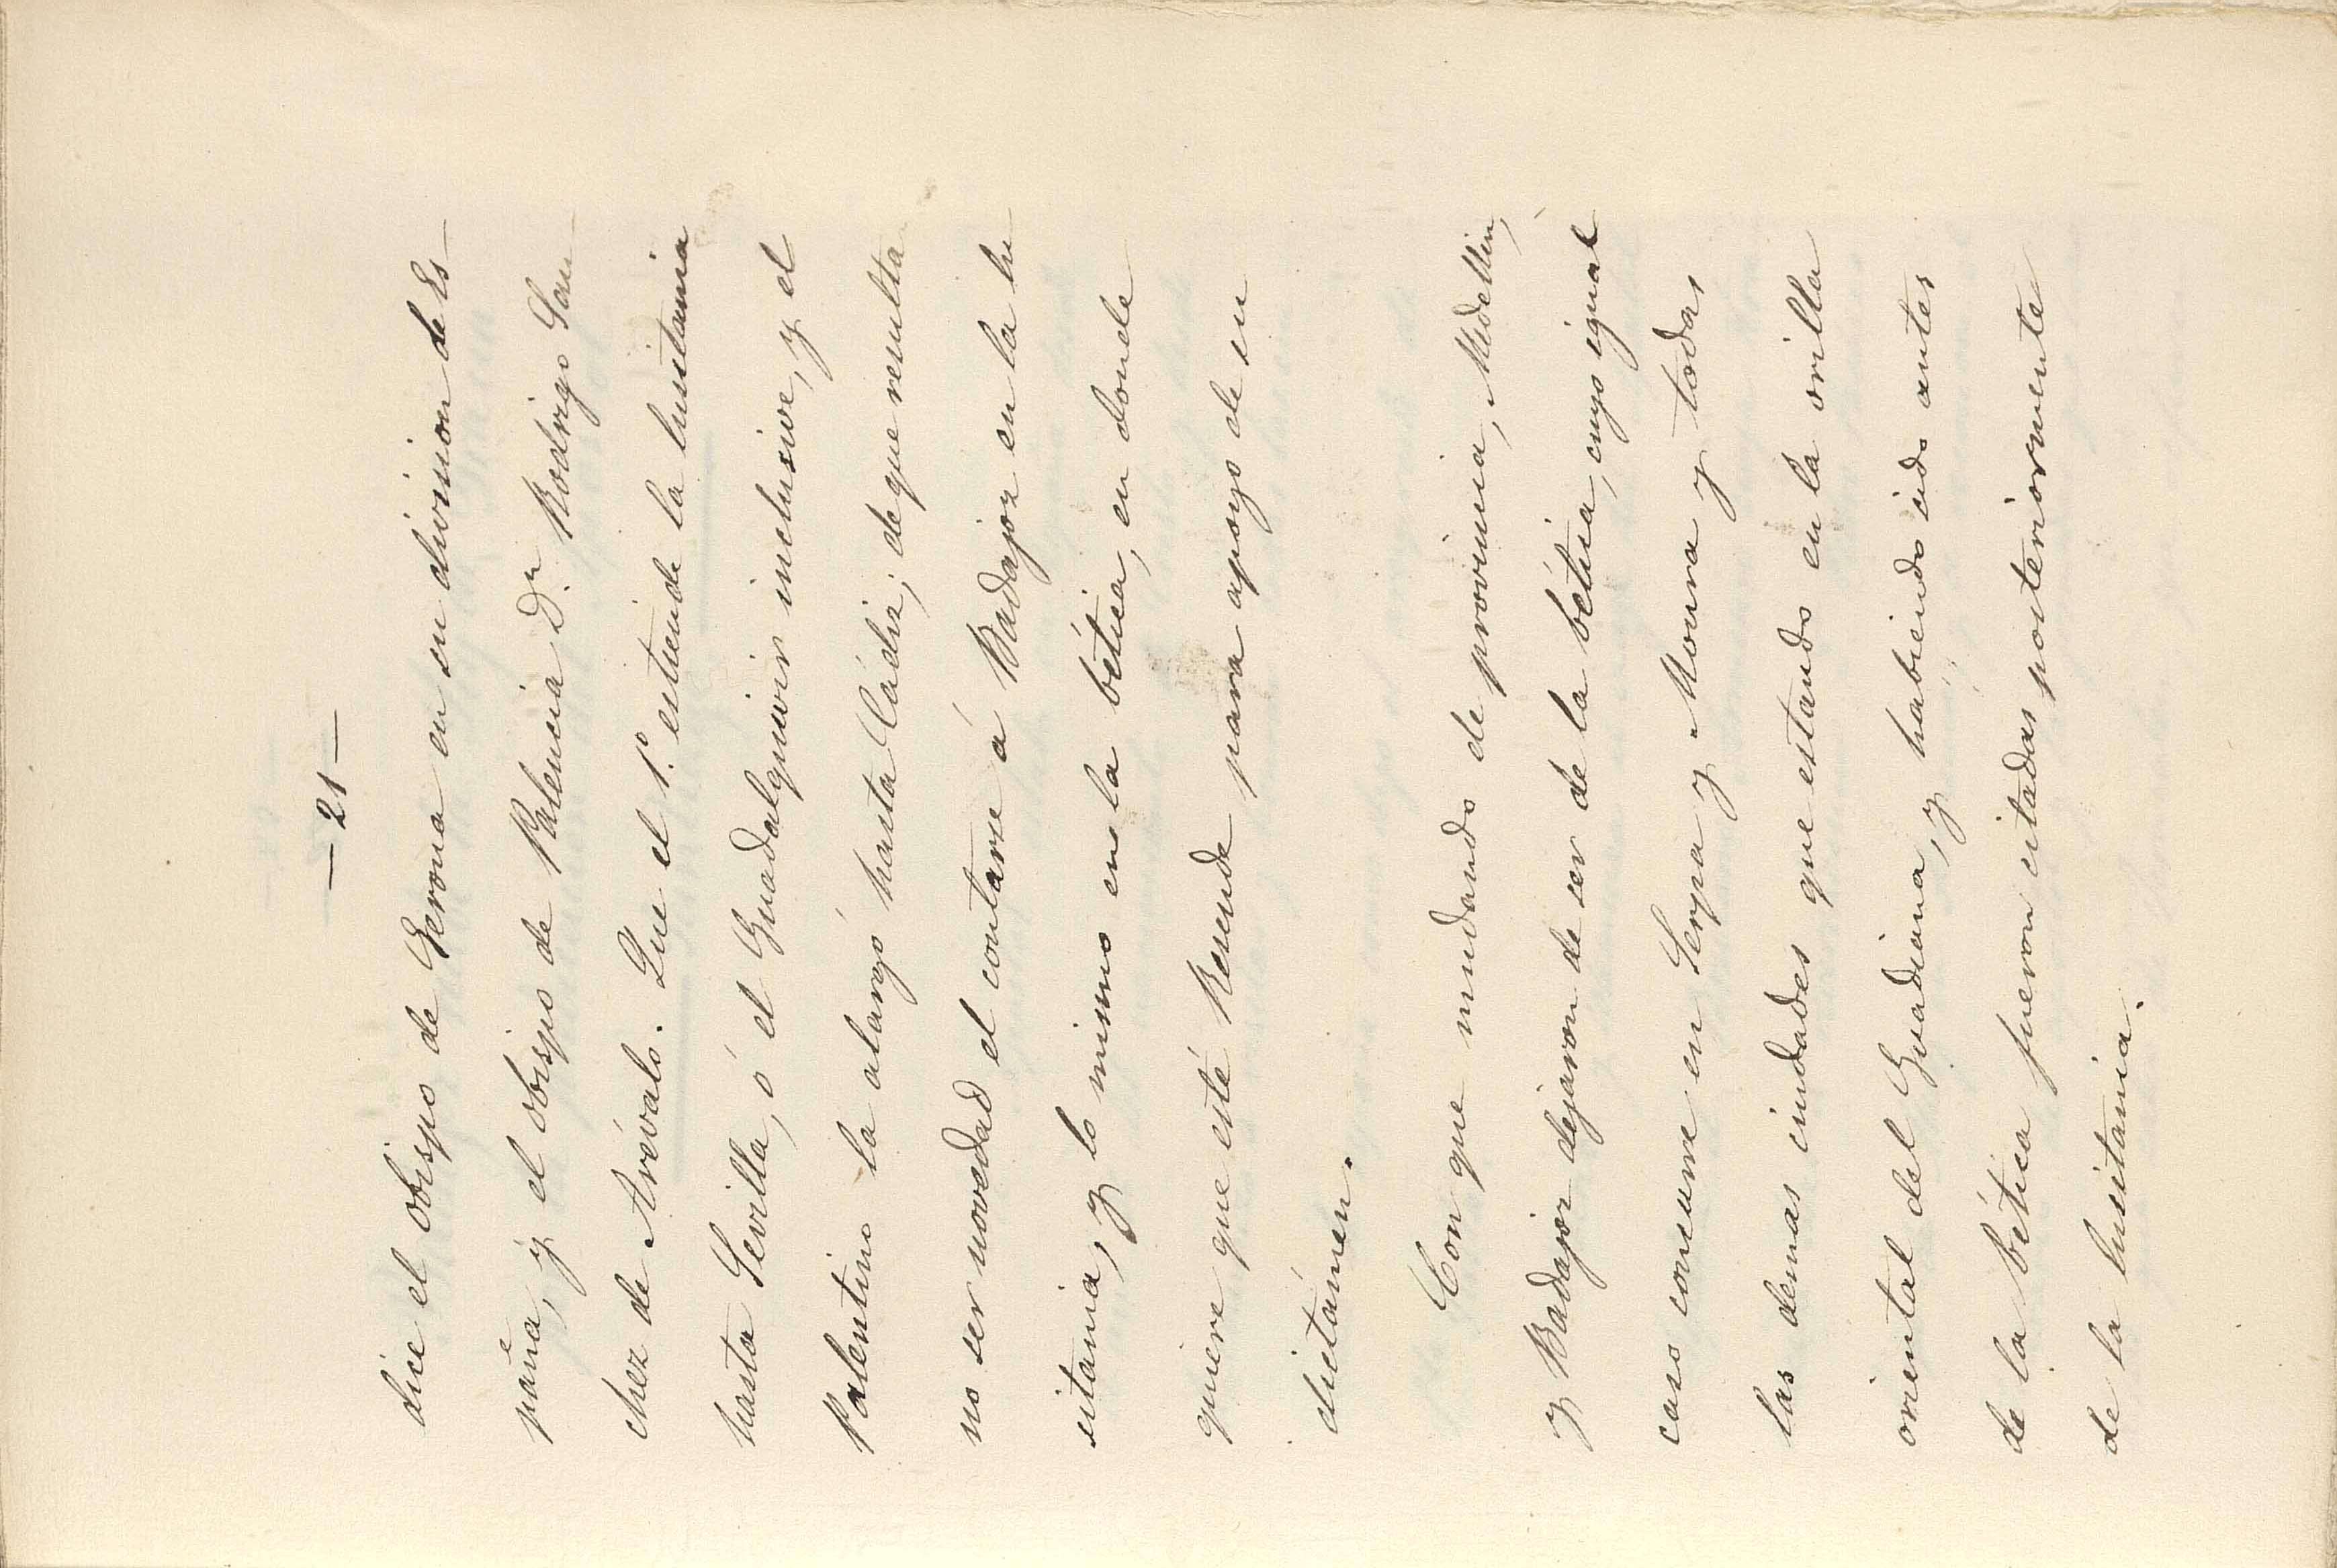 — 21 —
dice el obispo de Gerona en su division de Es-
paña, y el obispo de Palencia Dn. Rodrigo San-
chez de Arévalo. Que el 1.º estiende la lusitania
hasta Sevilla, ó el Guadalquivir inclusive, y el
Palentino la alargó hasta Cádiz; de que resulta
no ser novedad el contarse á Badajoz en la lu-
sitania, y lo mismo en la bética, en donde
quiere que esté Resende para apoyo de su
dictámen.
Con que mudando de provincia, Medellin,
y Badajoz dejaron de ser de la bética, cuyo igual
caso concurre en Serpa y Moura y todas
las demas ciudades que estando en la orilla
oriental del Guadiana, y habiendo sido antes
de la bética fueron citadas posteriormente
de la lusitania.